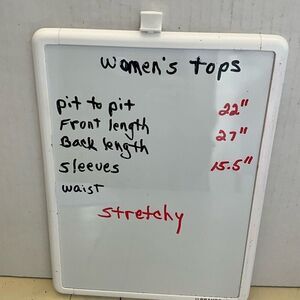 women's tops
pit to pit 22"
Front length 27"
Back length
sleeves 15.5"
waist
stretchy